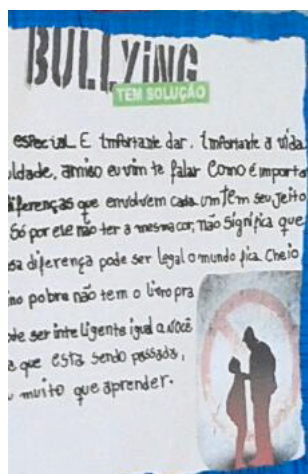 BULLYING
TEM SOLUÇÃO
especial E Importante dar. Importante a vida
uldade, amigo eu vim te falar Como é importa
diferenças que envolvem cada um tem seu jeito
Só por ele não ter a mesma cor, não significa que
sa diferença pode ser legal o mundo fica cheio
no pobre não tem o livro pra
de ser inteligente igual a você
a que esta sendo passada,
muito que aprender.